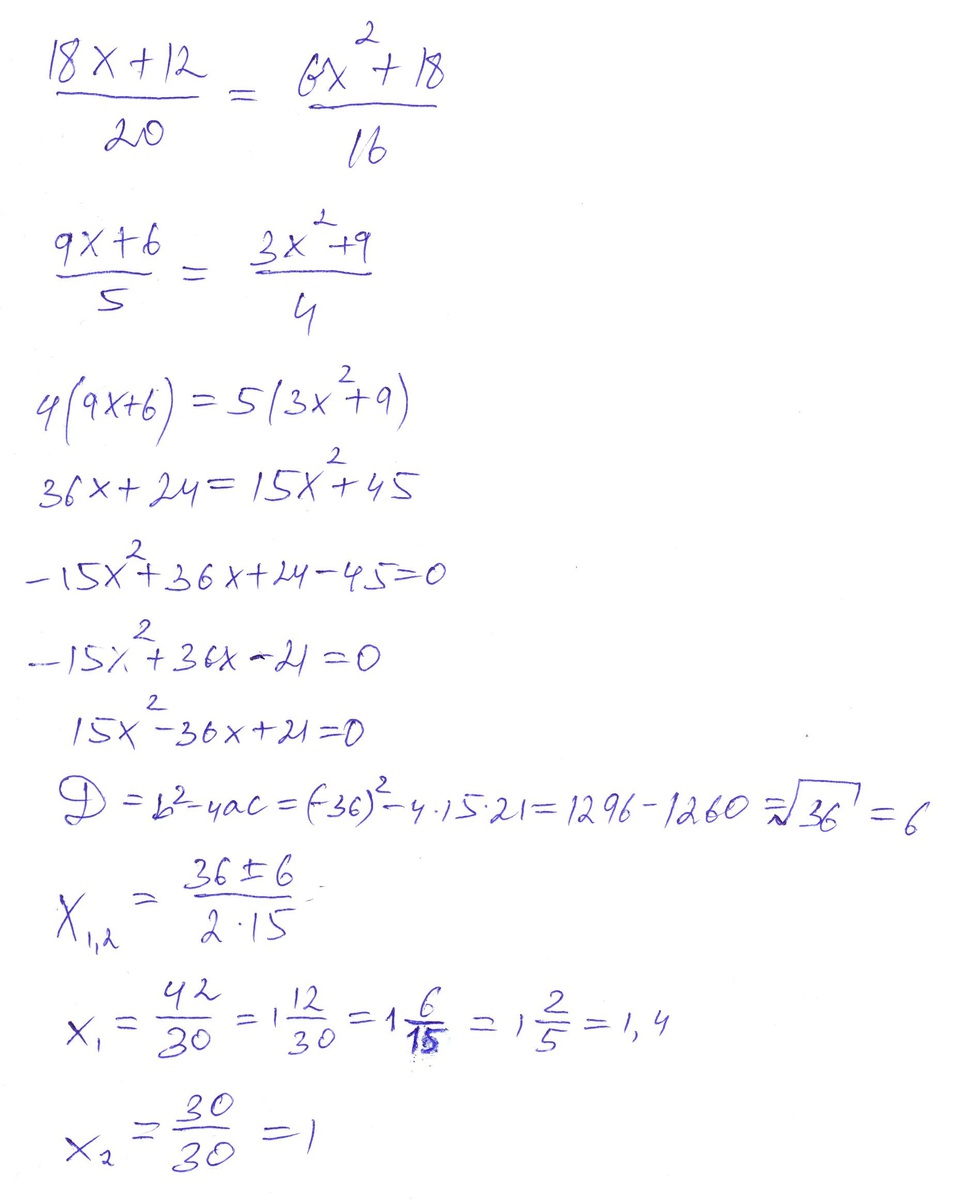 (18x+12)/20 = (6x²+18)/16
(9x+6)/5 = (3x²+9)/4
4(9x+6) = 5(3x²+9)
36x+24=15x²+45
-15x²+36x+24-45=0
-15x²+36x-21=0
15x²-36x+21=0
D=b²-4ac=(-36)²-4·15·21=1296-1260=√36=6
X₁,₂ = (36±6)/(2·15)
x₁ = 42/30 = 1 12/30 = 1 6/15 = 1 2/5 = 1,4
x₂ = 30/30 = 1